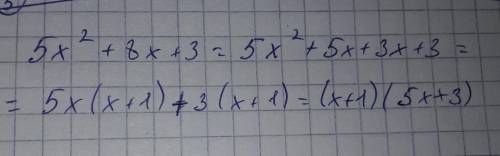 5x² + 8x + 3 = 5x² + 5x + 3x + 3 =
= 5x(x+1) + 3(x+1) = (x+1)(5x+3)